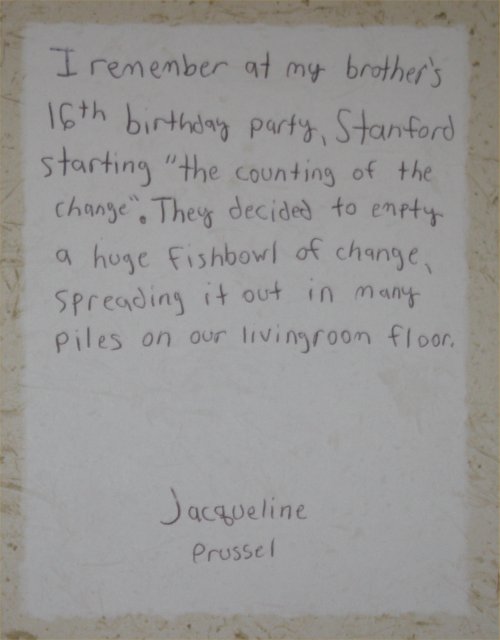 I remember at my brother's
16th birthday party, Stanford
starting "the counting of the
change". They decided to empty
a huge fishbowl of change,
spreading it out in many
piles on our livingroom floor.
Jacqueline
Prussel